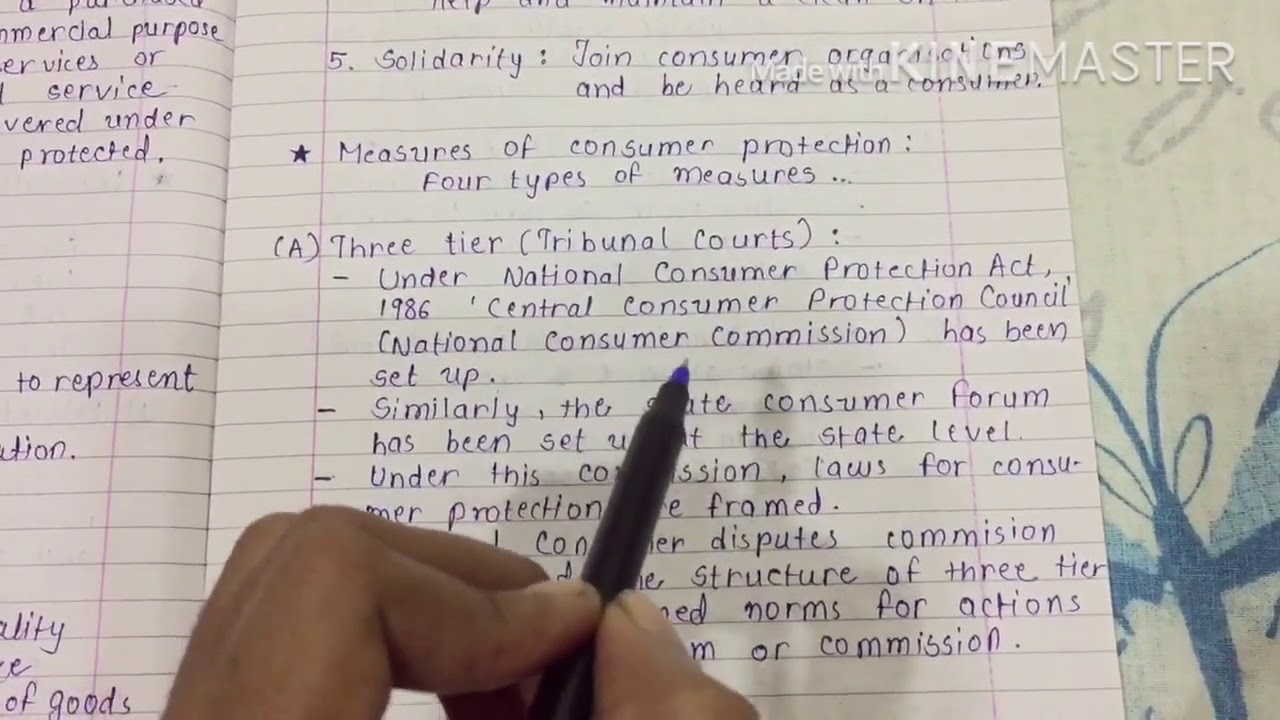 mmercial purpose
ervices or
service
vered under
protected.
to represent
ation.
ality
of goods
5. Solidarity : Join consumer organisations
and be heard as a consumer.
Made with KINEMASTER
★ Measures of consumer protection :
Four types of measures ...
(A) Three tier (Tribunal Courts) :
- Under National Consumer Protection Act,
1986 'Central Consumer Protection Council'
(National Consumer Commission) has been
set up.
- Similarly, the state consumer forum
has been set at the state level.
- Under this commission, laws for consu-
mer protection framed.
disputes commision
structure of three tier
norms for actions
or commission.